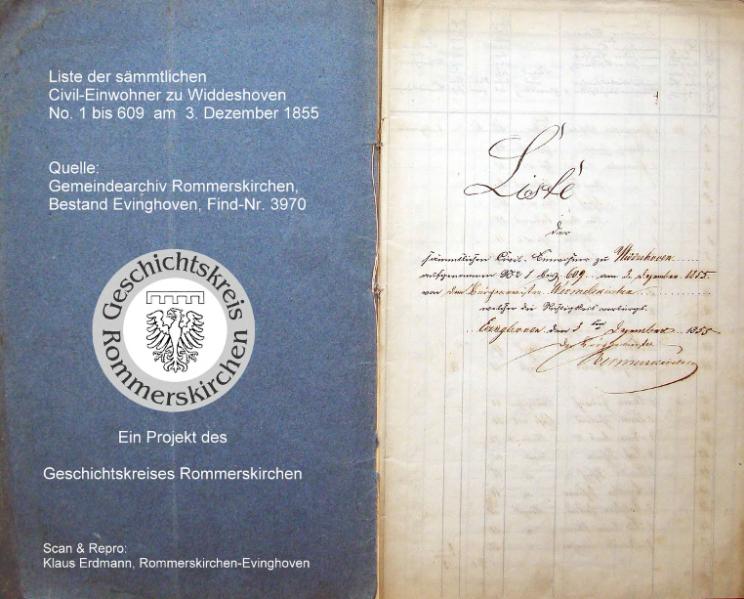 Liste der sämmtlichen
Civil-Einwohner zu Widdeshoven
No. 1 bis 609 am 3. Dezember 1855
Quelle:
Gemeindearchiv Rommerskirchen,
Bestand Evinghoven, Find-Nr. 3970
Geschichtskreis
Rommerskirchen
Ein Projekt des
Geschichtskreises Rommerskirchen
Scan & Repro:
Klaus Erdmann, Rommerskirchen-Evinghoven
Liste
der
sämmtlichen Civil-Einwohner zu
aufgenommen No 1 bis 609 am 3. Dezember 1855
von dem Bürgermeister
welcher die Richtigkeit
den Dezember 1855